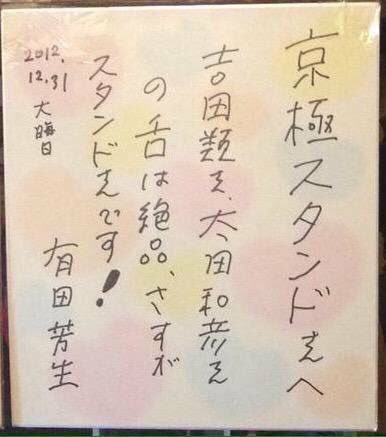 京極スタンドさんへ
吉田類さん、太田和彦さん
の舌は絶品、さすが
スタンドさんです!
2012.
12.31
大晦日
有田芳生